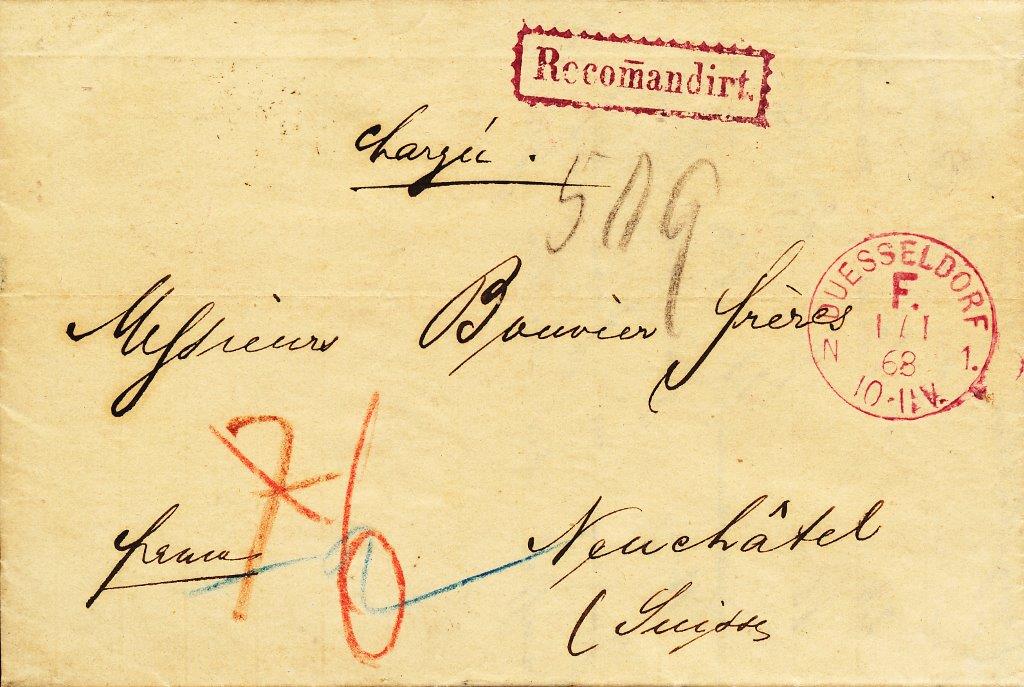 Recom̄andirt.
chargé.
509
Messieurs Bouvier frères
DUESSELDORF 1.
F.
1 / 1
68
10-11A.
N
76
franco
Neuchâtel
(Suisse